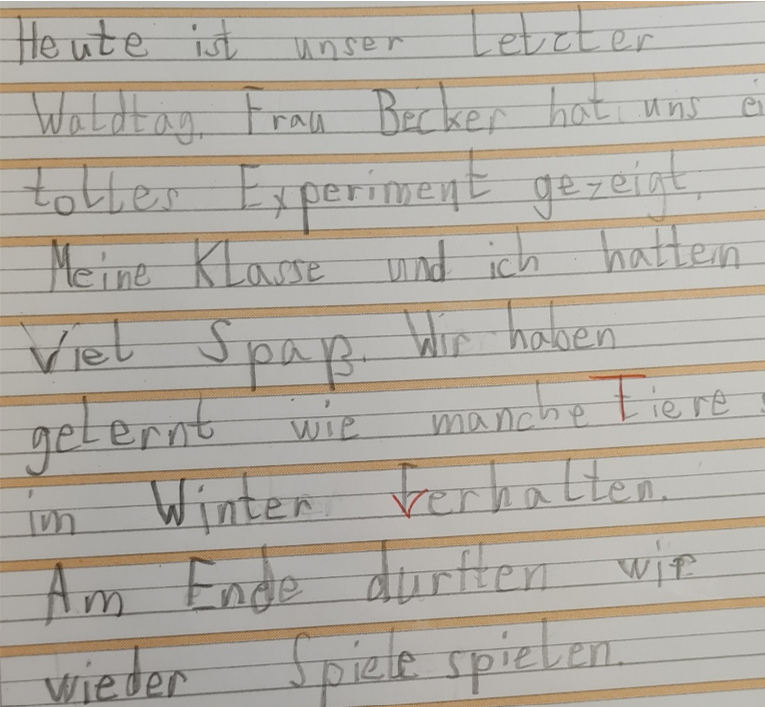 Heute ist unser Letzter
Waldtag. Frau Becker hat uns ei
tolles Experiment gezeigt.
Meine Klasse und ich hatten
Viel Spaß. Wir haben
gelernt wie manche Tiere
im Winter verhalten.
Am Ende durften wir
wieder Spiele spielen.